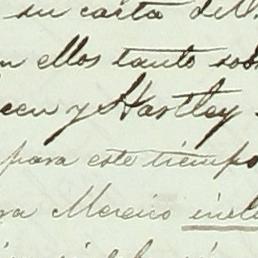 su carta del
en ellos tanto sob
een y Hartley
para este tiempo
ra Mereiro incl